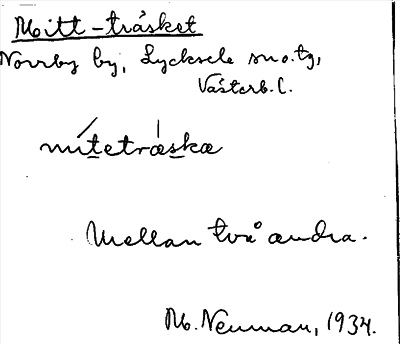 Mitt-träsket
Norrby by, Lycksele sn o. tg,
Västerb. l.
mìtetræskæ
Mellan två andra.
M. Neuman, 1934.